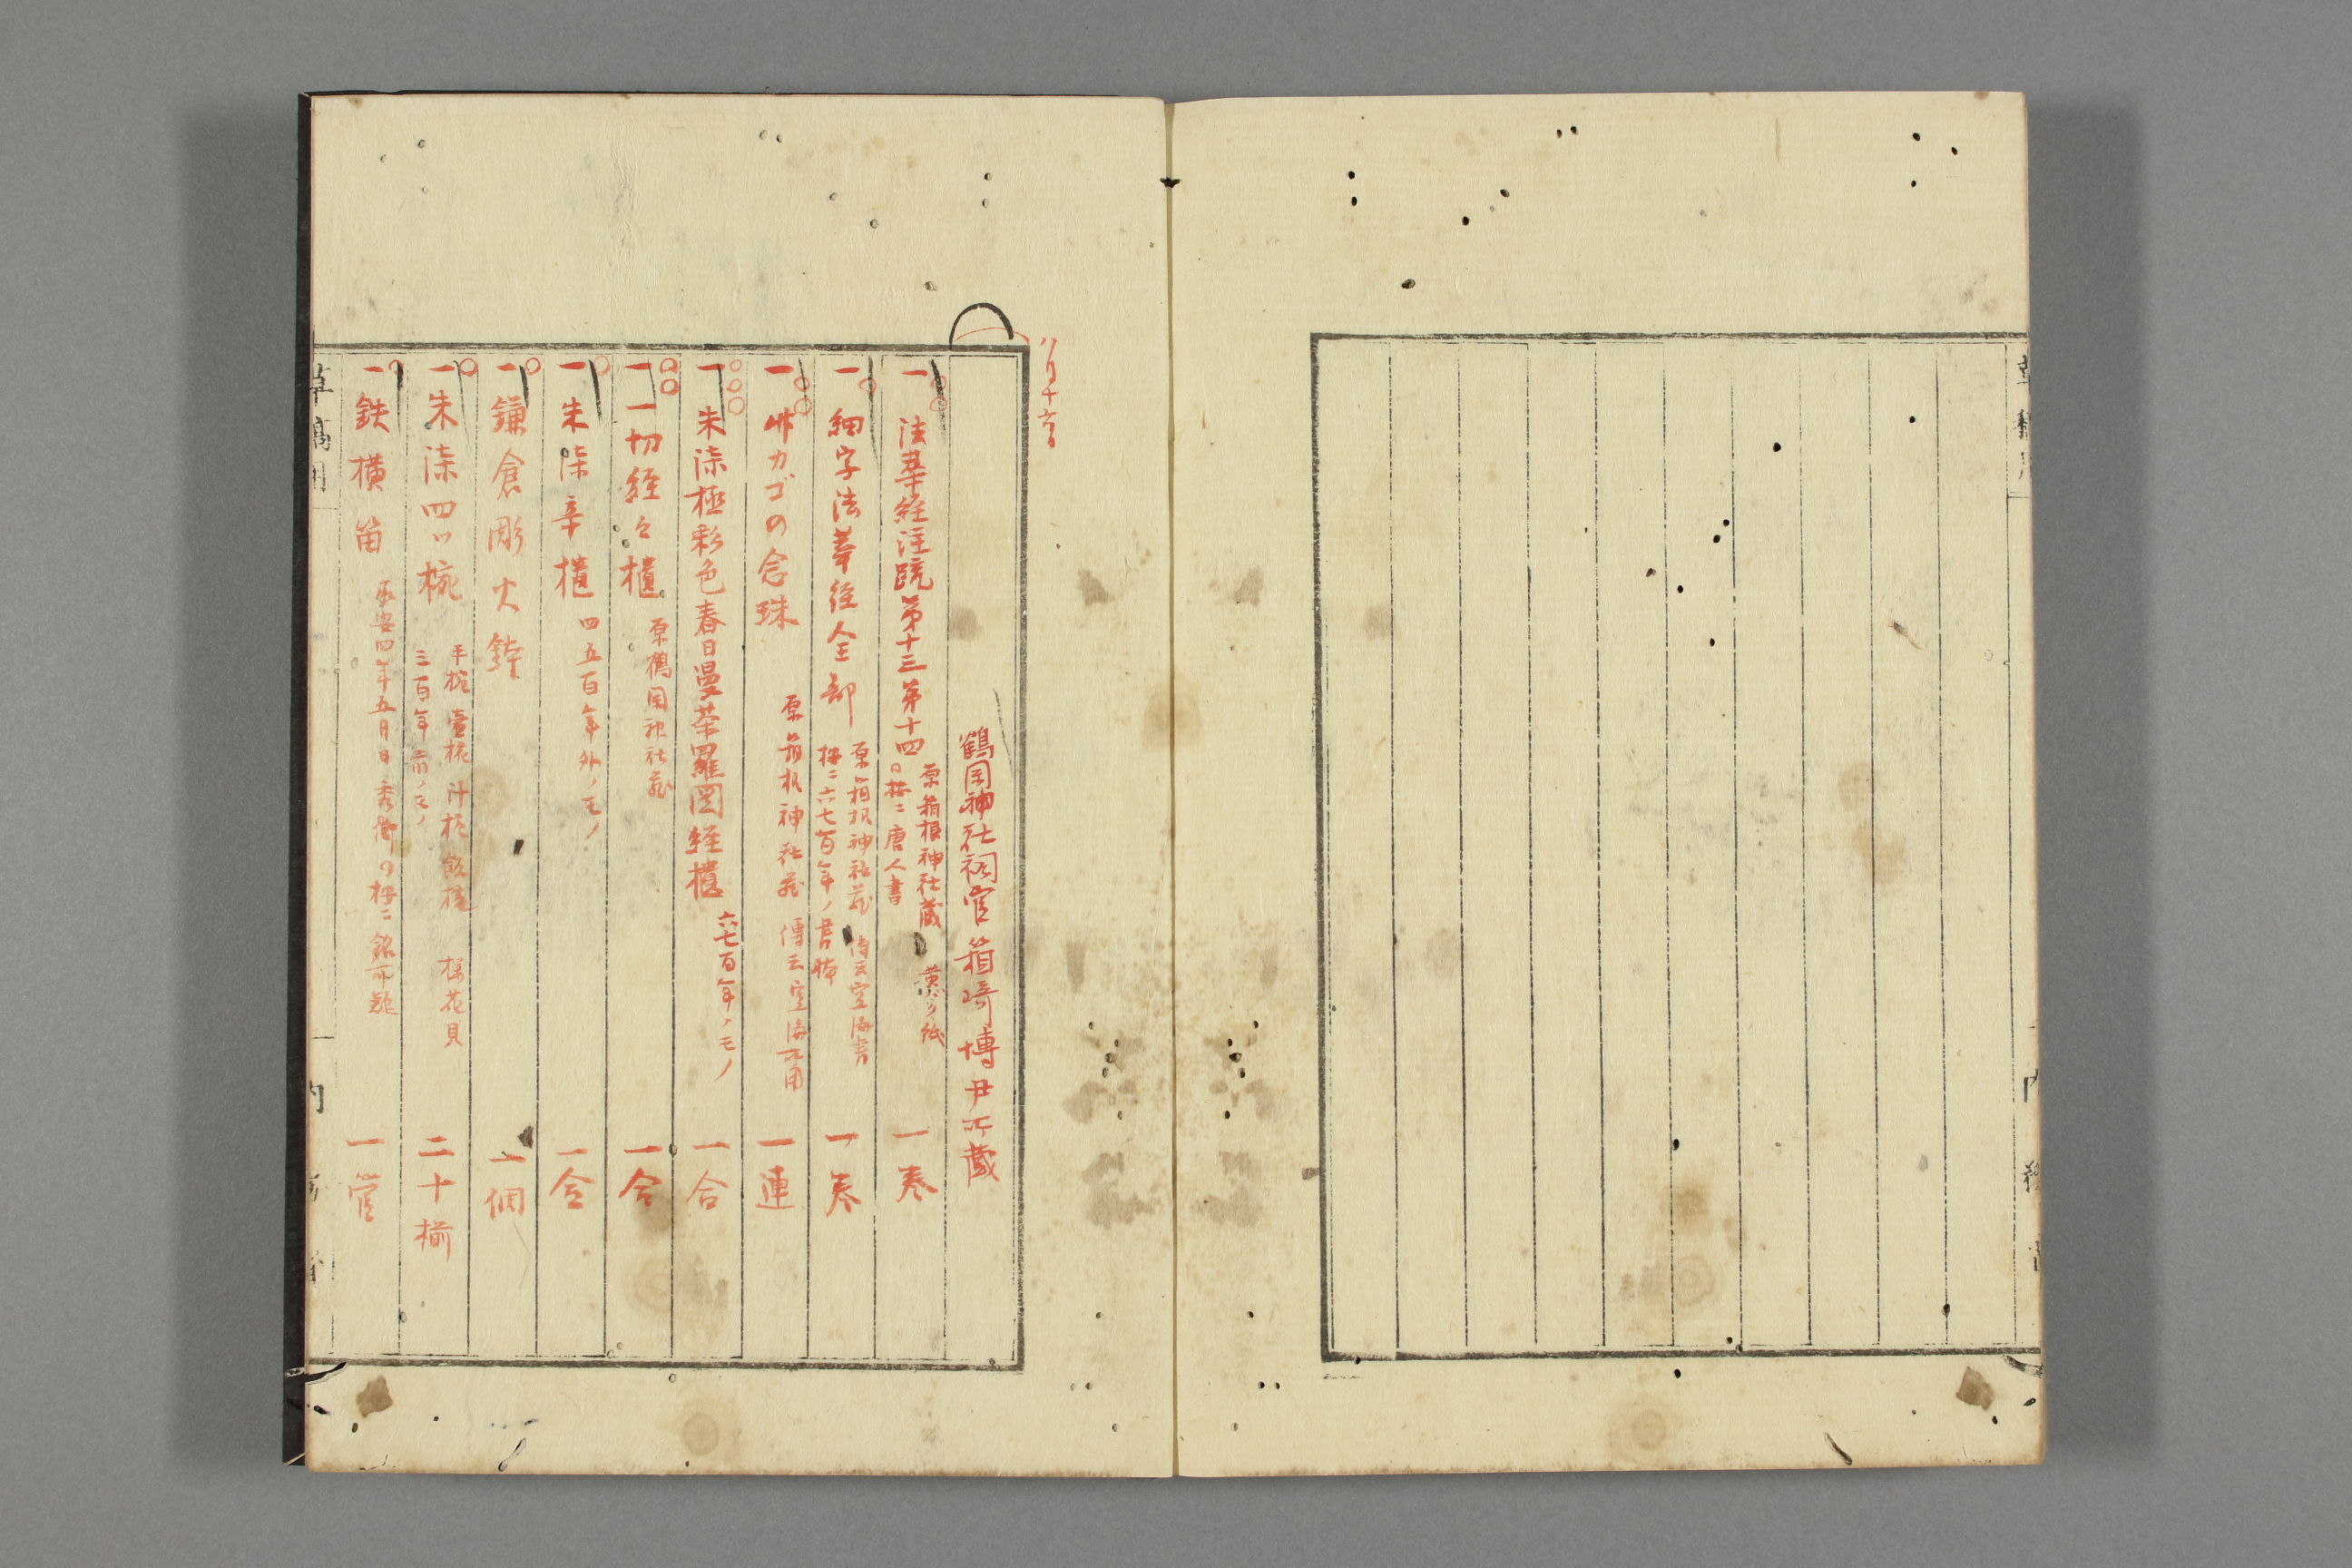 八月十六日
鶴岡神社祠官箱崎博尹所蔵
一法華経注疏第十三第十四 原箱根神社蔵 黄バリ紙 一巻
按ニ唐人書
一細字法華経全部 原箱根神社蔵 傳云空海書 一巻
按ニ六七百年ノ書体
一竹カゴの念珠 原箱根神社蔵 傳云空海所用 一連
一朱漆極彩色春日曼荼羅図経櫃 六七百年ノモノ 一合
一一切経々櫃 原鶴岡神社蔵 一合
一朱漆辛櫃 四五百年外ノモノ 一合
一鎌倉彫火鉢 一個
一朱漆四ツ椀 平椀 壷椀 汁椀 飯椀 桜花貝 二十揃
三百年前ノモノ
一鉄横笛 承安四年五月日秀衡の按ニ銘可疑 一管
草稿用
内務省